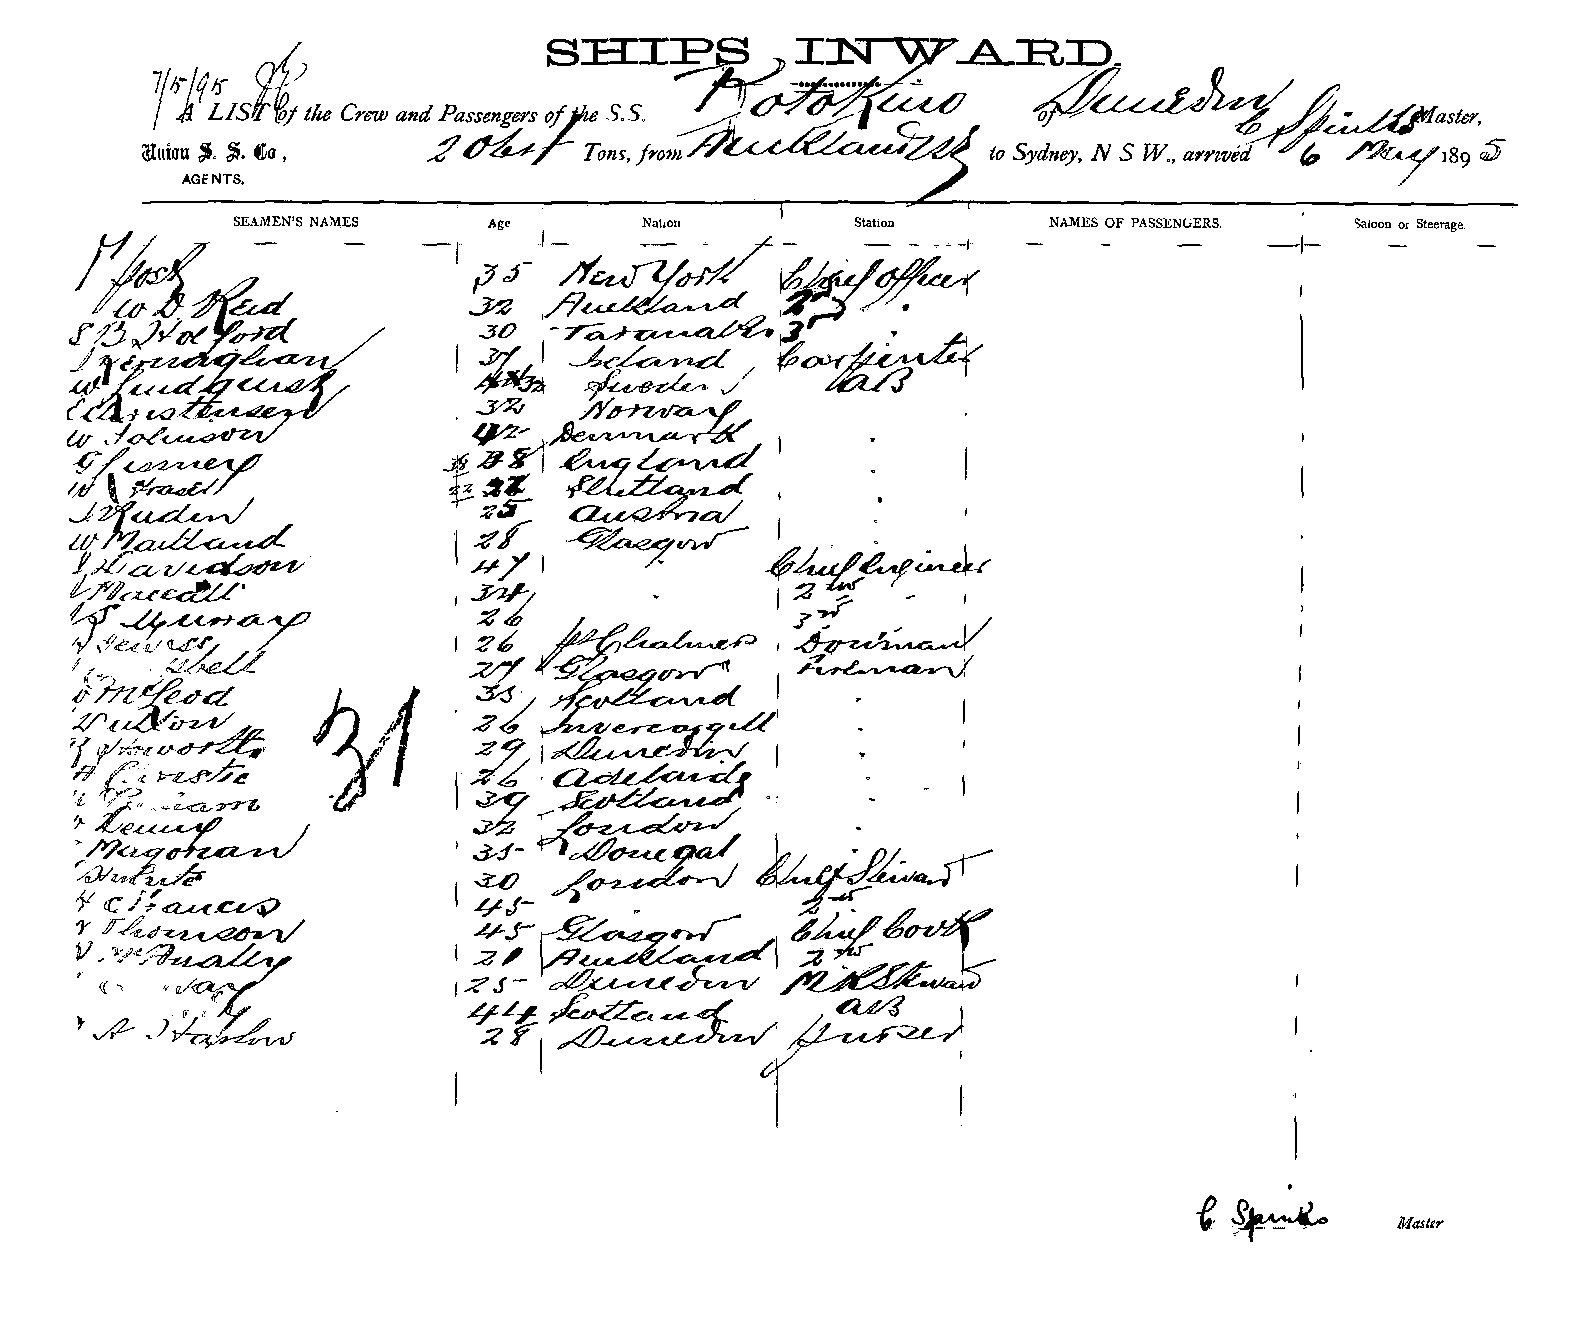 SHIPS INWARD.
7/5/95
A LIST of the Crew and Passengers of the S.S. Rotokino of Dunedin C Spinks Master,
Union S. S. Co., Tons, from Auckland to Sydney, N S W., arrived 6 May 1895
AGENTS.
SEAMEN'S NAMES Age Nation Station NAMES OF PASSENGERS. Saloon or Steerage.
35 New York Chief Officer
W D Reid 32 Auckland 2nd
S B Holford 30 Taranaki 3rd
J Kernaghan 37 Ireland Carpenter
W Lindquist 32 Sweden AB
Christensen 32 Norway
W Johnson 42 Denmark
38 England
W Fraser 22 Shetland
25 Austria
W Maitland 28 Glasgow
Davidson 47 Chief Engineer
34 2nd
Murray 26 3rd
26 Pt Chalmers
27 Glasgow Fireman
McLeod 35 Scotland
26 Invercargill
Howorth 29 Dunedin
Christie 26 Adelaide
39 Scotland
Denny 32 London
Magorian 35 Donegal
30 London Chief Steward
Francis 45 2nd
Thomson 45 Glasgow Chief Cook
McAnally 21 Auckland 2nd
25 Dunedin M R Steward
44 Scotland AB
A Harlow 28 Dunedin Purser
31
C Spinks Master